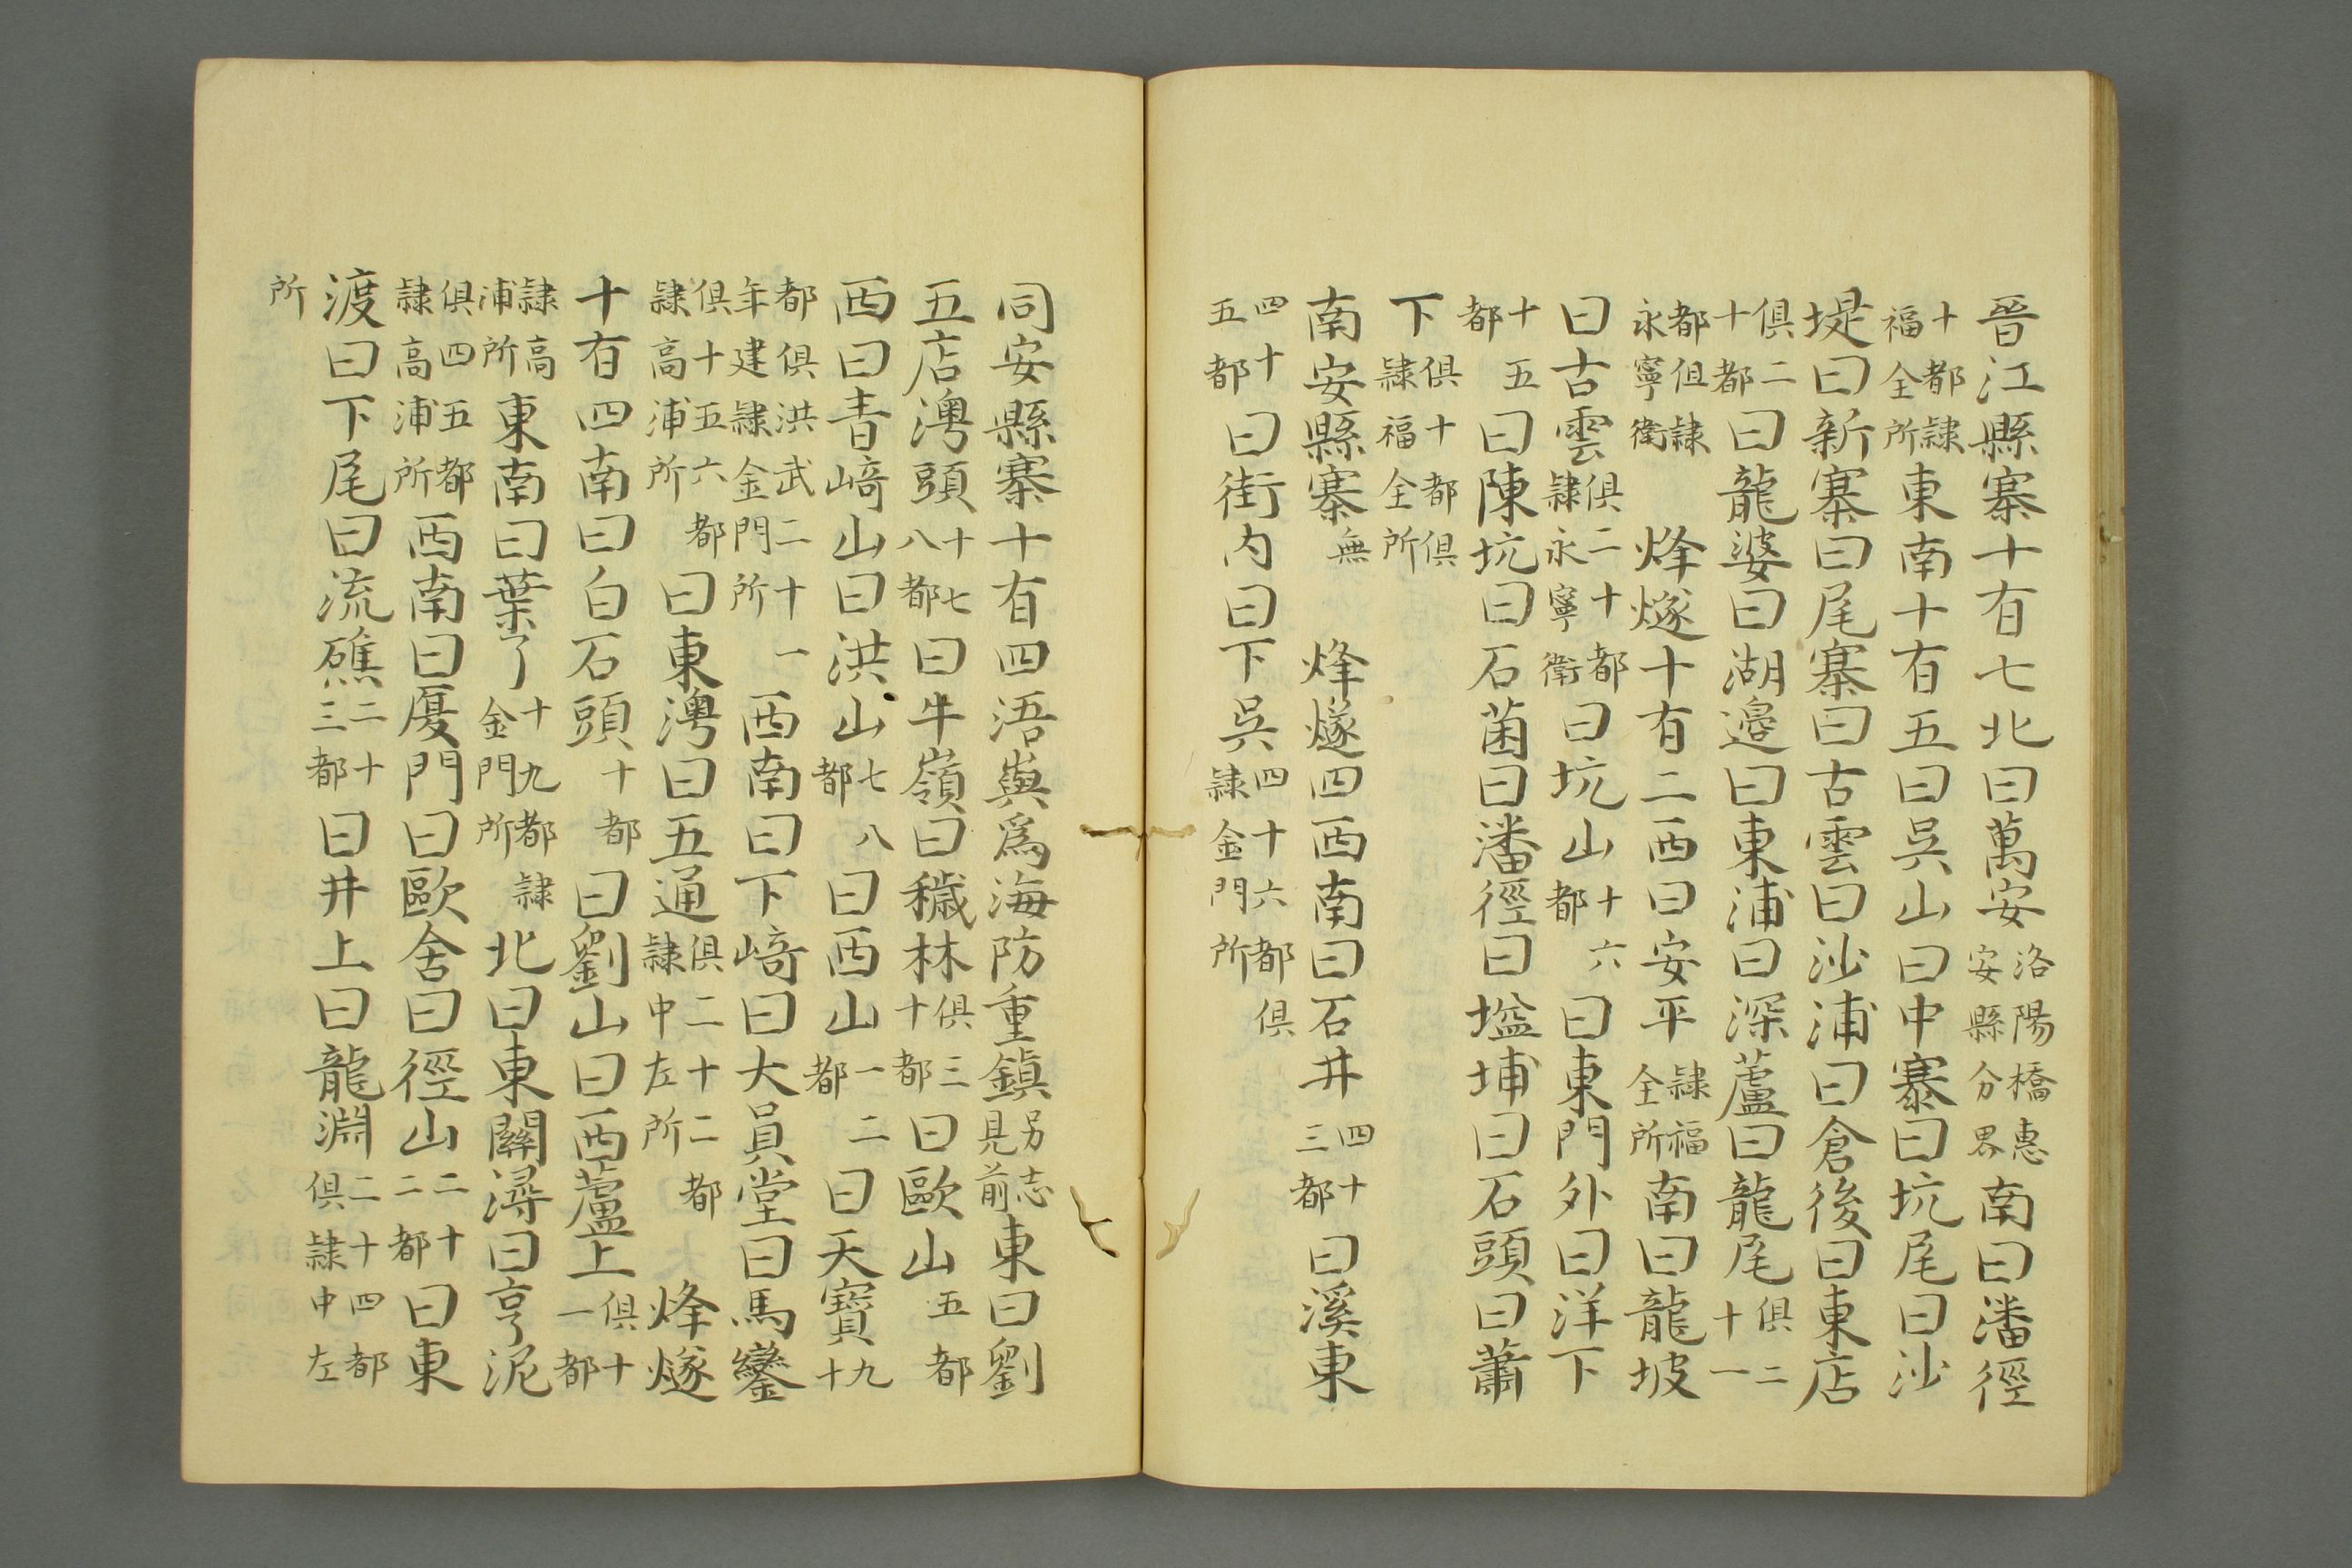 晉江縣寨十有七北曰萬安洛陽橋惠安縣分界南曰潘徑
十都隷福全所東南十有五曰吳山曰中寨曰坑尾曰沙
堤曰新寨曰尾寨曰古雲曰沙浦曰倉後曰東店
俱二十都曰龍婆曰湖邊曰東浦曰深蘆曰龍尾俱二十一
都但隷永寧衛 烽燧十有二西曰安平隷福全所南曰龍坡
曰古雲俱二十都隷永寧衛曰坑山十六都曰東門外曰洋下
十五都曰陳坑曰石菌曰潘徑曰塩埔曰石頭曰蕭
下俱十都俱隷福全所
南安縣寨無 烽燧四西南曰石井四十三都曰溪東
四十五都曰街內曰下吳四十六都俱隷金門所
同安縣寨十有四浯嶼爲海防重鎮另志見前東曰劉
五店澚頭十七八都曰牛嶺曰穢林俱三十都曰歐山五都
西曰青﨑山曰洪山七八都曰西山一二都曰天寶九十
都俱洪武二十一年建隷金門所西南曰下﨑曰大員堂曰馬鑾
俱十五六都隷高浦所曰東澚曰五通俱二十二都隷中左所 烽燧
十有四南曰白石頭十都曰劉山曰西蘆上俱十一都
隷高浦所東南曰葉了十九都隷金門所北曰東關潯曰亨泥
俱四五都隷高浦所西南曰厦門曰歐舍曰徑山二十二都曰東
渡曰下尾曰流礁二十三都曰井上曰龍淵二十四都俱隷中左
所